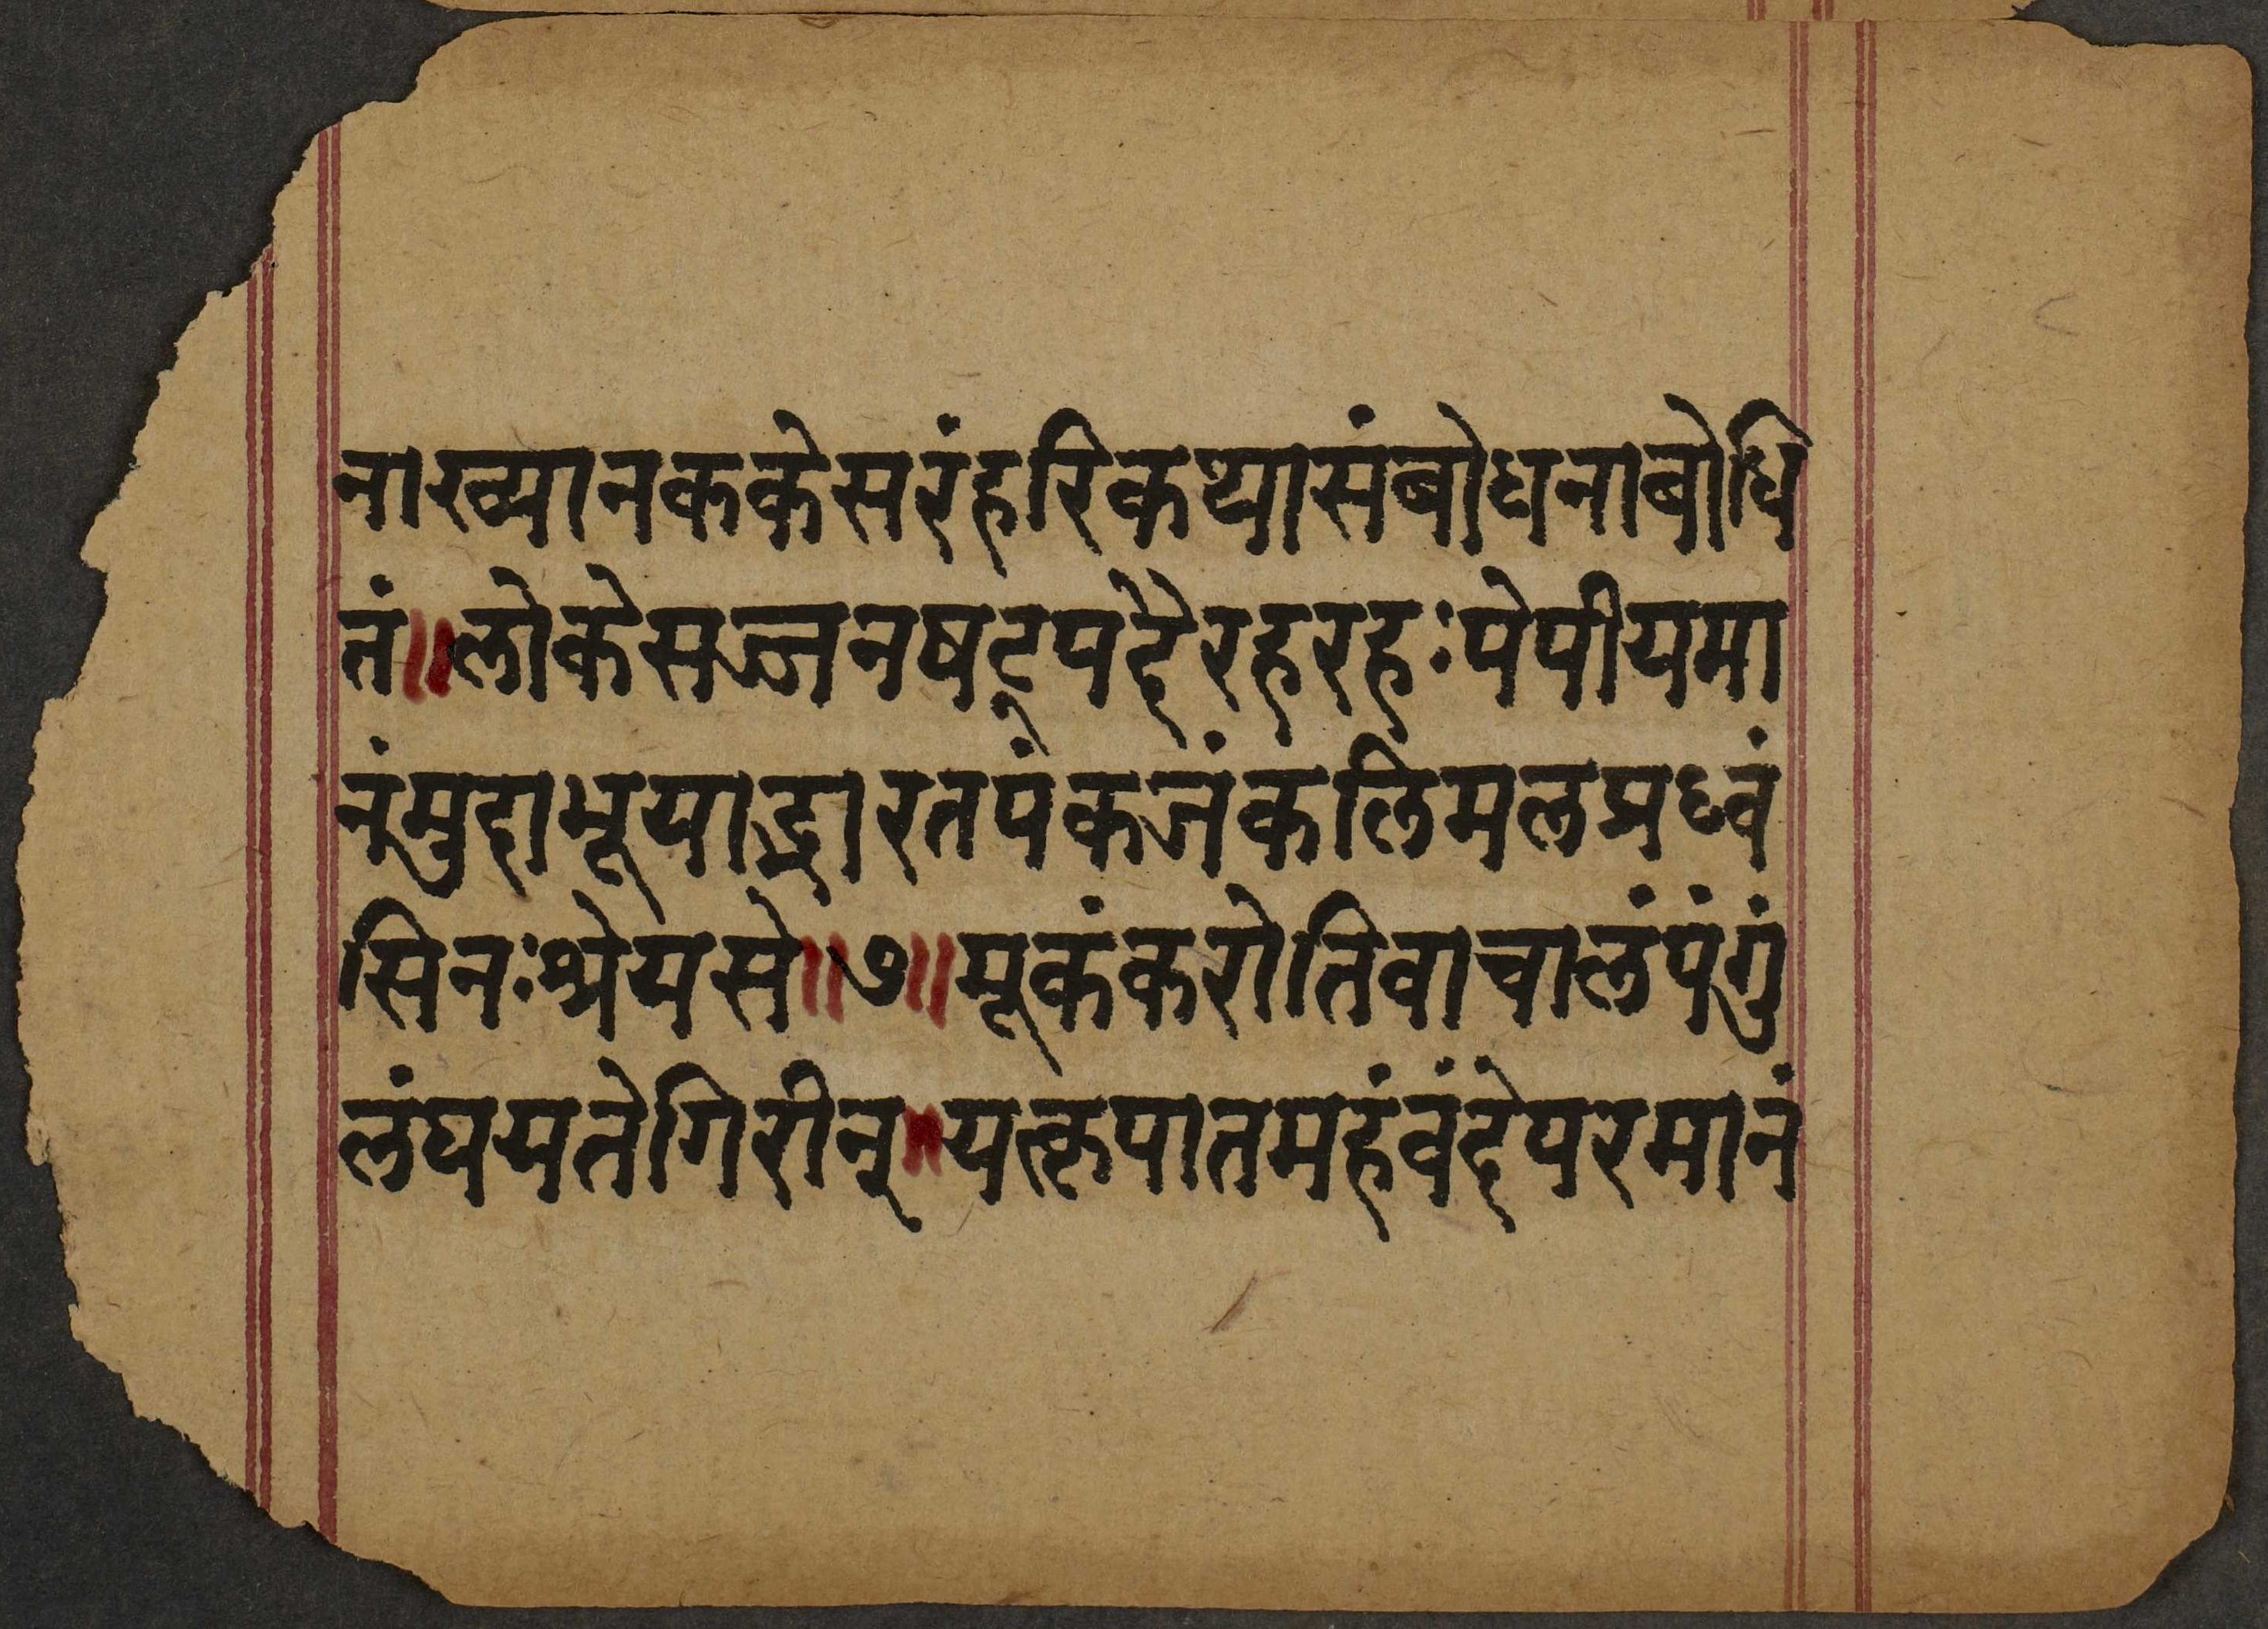 नाख्यानककेसरंहरिकथासंबोधनाबोधि
तं॥लोकेसज्जनषट्पदैरहरहःपेपीयमा
नंमुदाभूयाद्भारतपंकजंकलिमलप्रध्वं
सिनःश्रेयसे॥७॥मूकंकरोतिवाचालंपंगुं
लंघयतेगिरीन्॥यत्कृपातमहंवंदेपरमानं